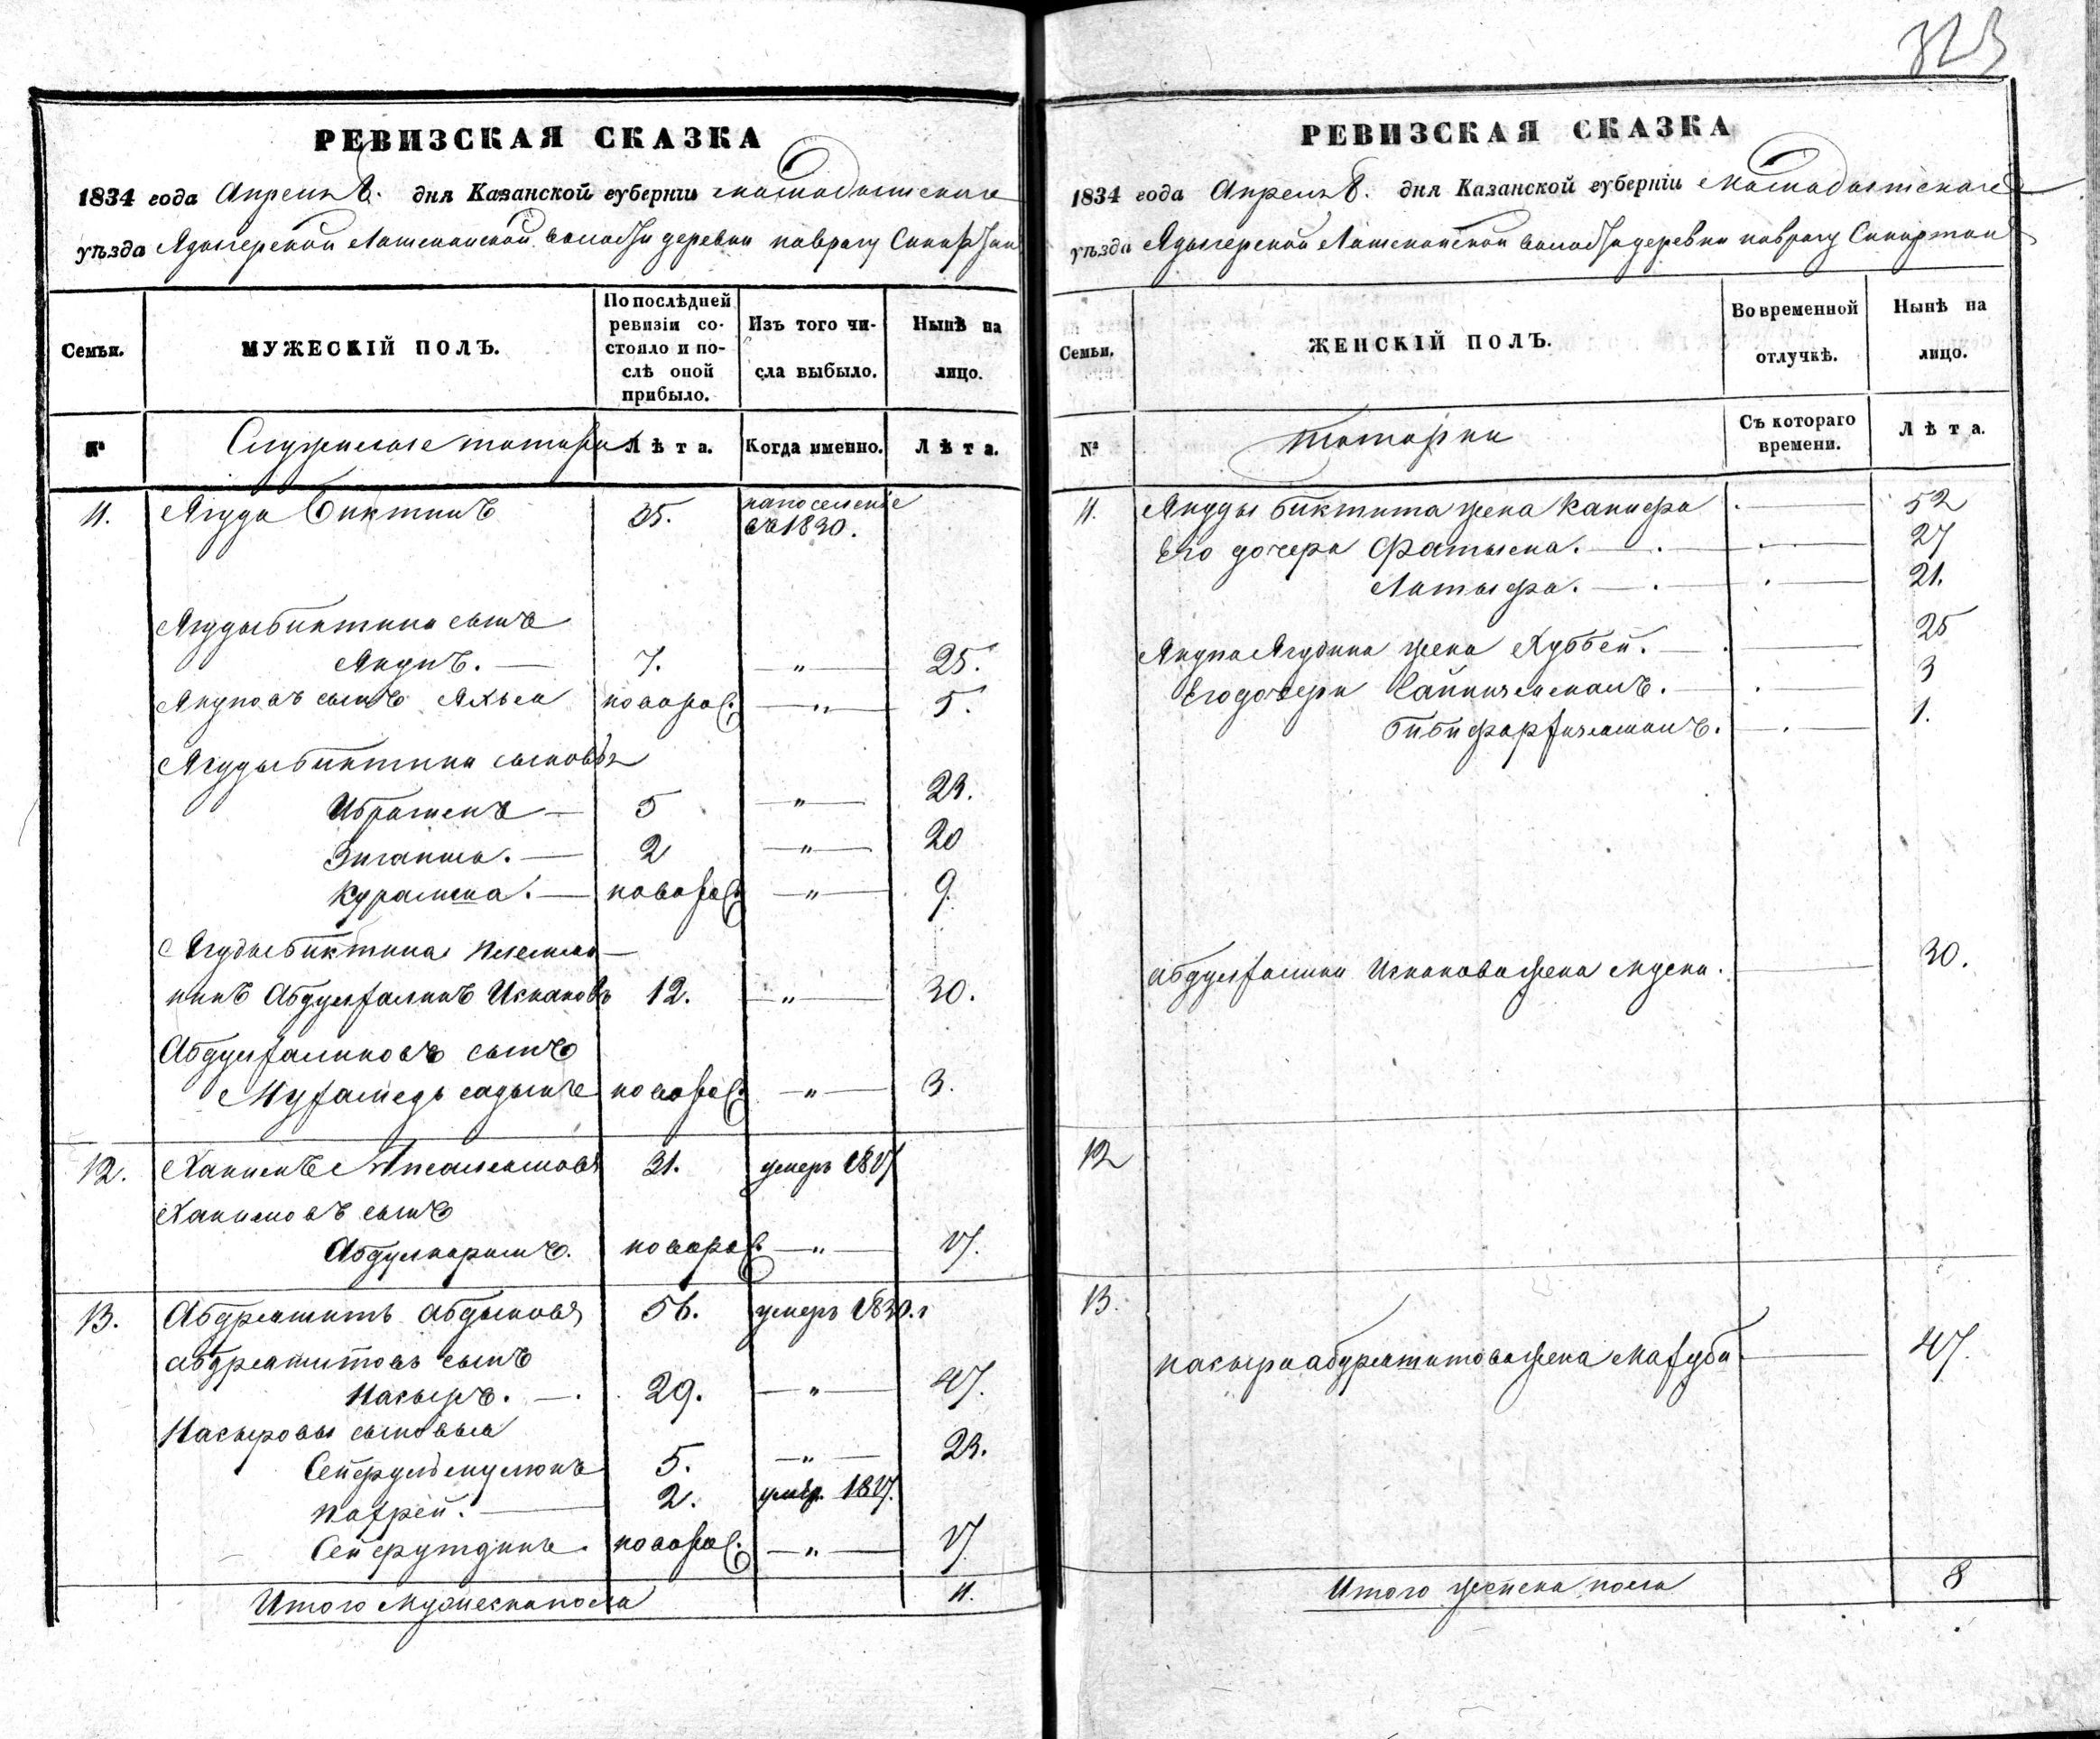 323
РЕВИЗСКАЯ СКАЗКА
1834 года Апреля 8. дня Казанской губерніи Мамадышскаго
уѣзда Адыгерской волости деревни поврагу
Семьи.
МУЖЕСКІЙ ПОЛЪ.
По послѣдней ревизіи состояло и послѣ оной прибыло.
Изъ того числа выбыло.
Нынѣ на лицо.
№
Служилые татары
Лѣта.
Когда именно.
Лѣта.
11. Ягуда Биктинъ 35. на поселеніе въ 1830.
Ягуды Биктина сынъ
Якупъ. — 7. — „ — 25.
Якуповъ сынъ Яхья новорож. — „ — 5.
Ягуды Биктина сыновья
Ибрагимъ — 5 — „ — 23.
Зиганша. — 2 — „ — 20
Курамша. — новорож. — „ — 9.
Ягуды Биктина племян—
никъ Абдулгалимъ Исхаковъ 12. — „ — 30.
Абдулгалимовъ сынъ
Мухаметь садыкъ новорож. — „ — 3.
12. Хакимъ 31. умеръ 1817
Хакимовъ сынъ
Абдулкаримъ. новорож. — „ — 17.
13. Абдряшитъ Абдыковъ 56. умеръ 1830. г
абдряшитовъ сынъ
Насыръ. — 29. — „ — 47.
Насыровы сыновья
Сейфульмулюкъ 5. — „ — 23.
2. умер. 1817.
Сейфутдинъ. новорож. — „ — 17
Итого мужеска пола 11.
РЕВИЗСКАЯ СКАЗКА
1834 года Апреля 8. дня Казанской губерніи Мамадышскаго
уѣзда Адыгерской волости деревни поврагу
Семьи.
ЖЕНСКІЙ ПОЛЪ.
Во временной отлучкѣ.
Нынѣ на лицо.
№
татарки
Съ котораго времени.
Лѣта.
11. Ягуды Биктина жена Ханифа . — 52
Его дочери Фатыма. — . — 27
Латыфа. — . — 21.
Якупа Ягудина жена Хуббей. — . — 25
Его дочери . — 3
. — 1.
абдулгалима Исхакова жена . — 30.
12
13.
насыра абдряшитова жена Махуба — 47.
Итого женска пола 8